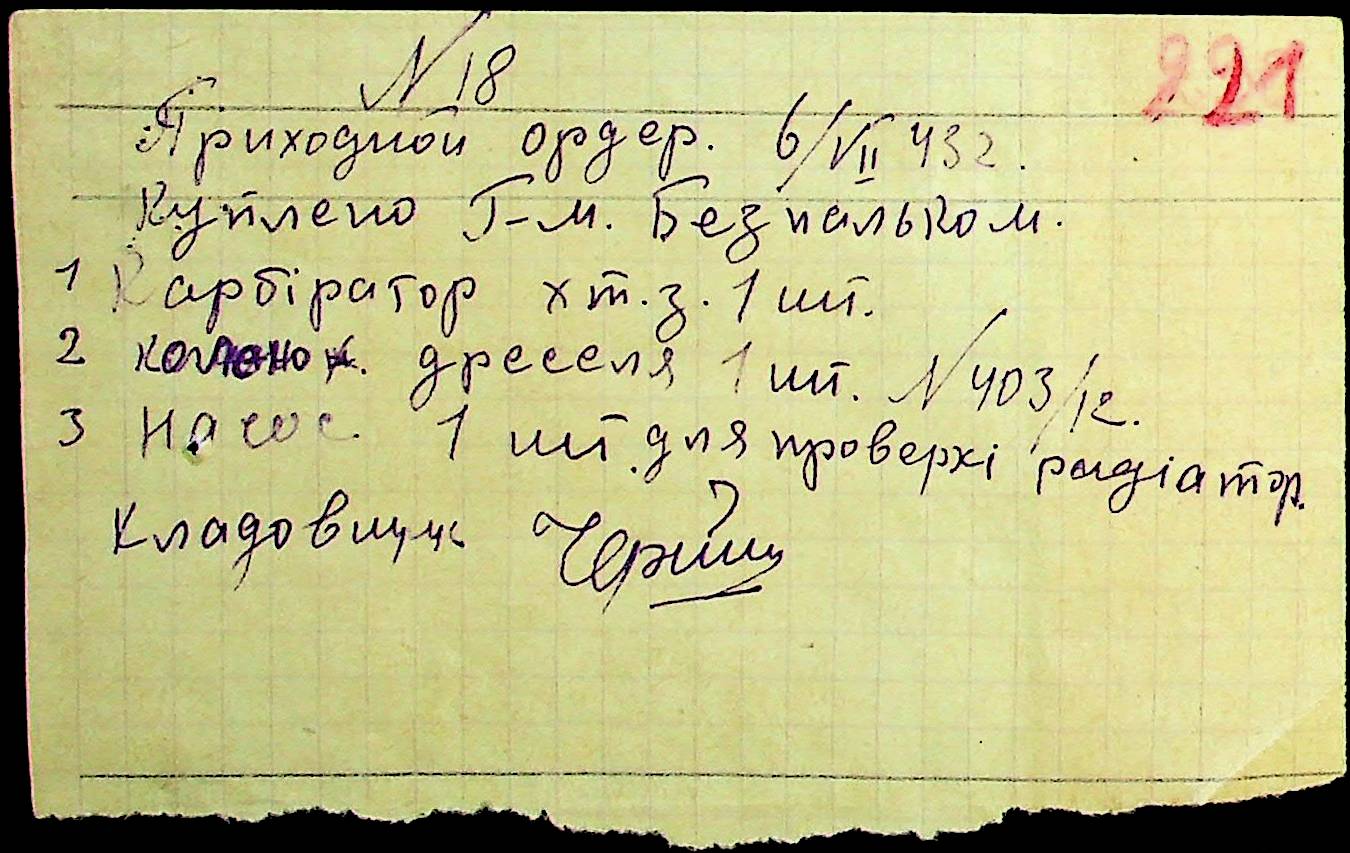 221
N 18
Приходной ордер. 6/VII 43 г.
Куплено Г-м. Безпальком.
1 Карбіратор хт.з. 1 шт.
2 дресселя 1 шт. N 403/12.
3 Насос 1 шт. для проверкі радіатор.
Кладовщик